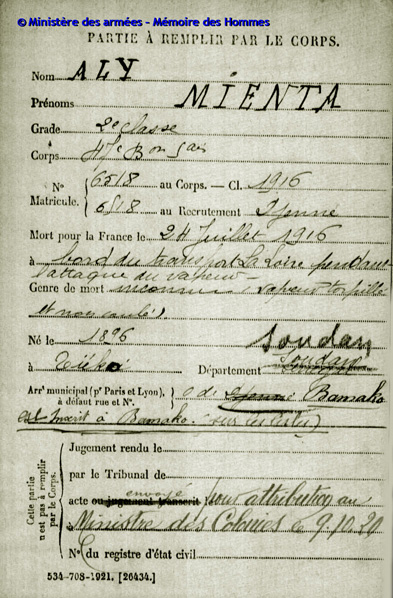 © Ministère des armées - Mémoire des Hommes
PARTIE À REMPLIR PAR LE CORPS.
Nom ALY
Prénoms MIENTA
Grade 2e classe
Corps 47e Bon
N° Matricule. 6518 au Corps. — Cl. 1916
6518 au Recrutement Djenné
Mort pour la France le 24 Juillet 1916
à bord du transport La Loire pendant
l'attaque du vapeur
Genre de mort inconnu (vapeur torpillé
et non coulé)
Né le 1896
Soudan
à Département Soudan
Arrt municipal (pr Paris et Lyon), à défaut rue et N°. C de Djenné Bamako
est inscrit à Bamako. sur les listes)
Cette partie n'est pas à remplir par le Corps.
Jugement rendu le
par le Tribunal de
envoyé
acte ou jugement transcrit pour attribution au
à Ministre des Colonies le 9.10.20
N° du registre d'état civil
534-708-1921. [26434.]